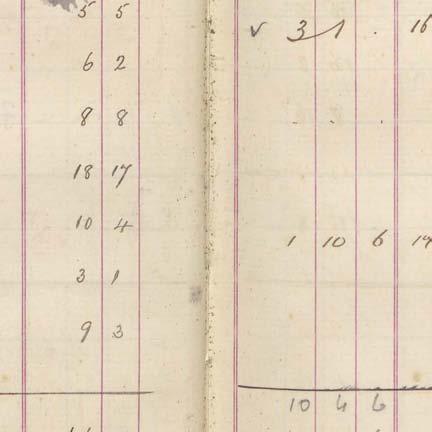 5 5
6 2
8 8
18 17
10 4
3 1
9 3
v 3 1 . 16
. .
1 10 6
10 4 6